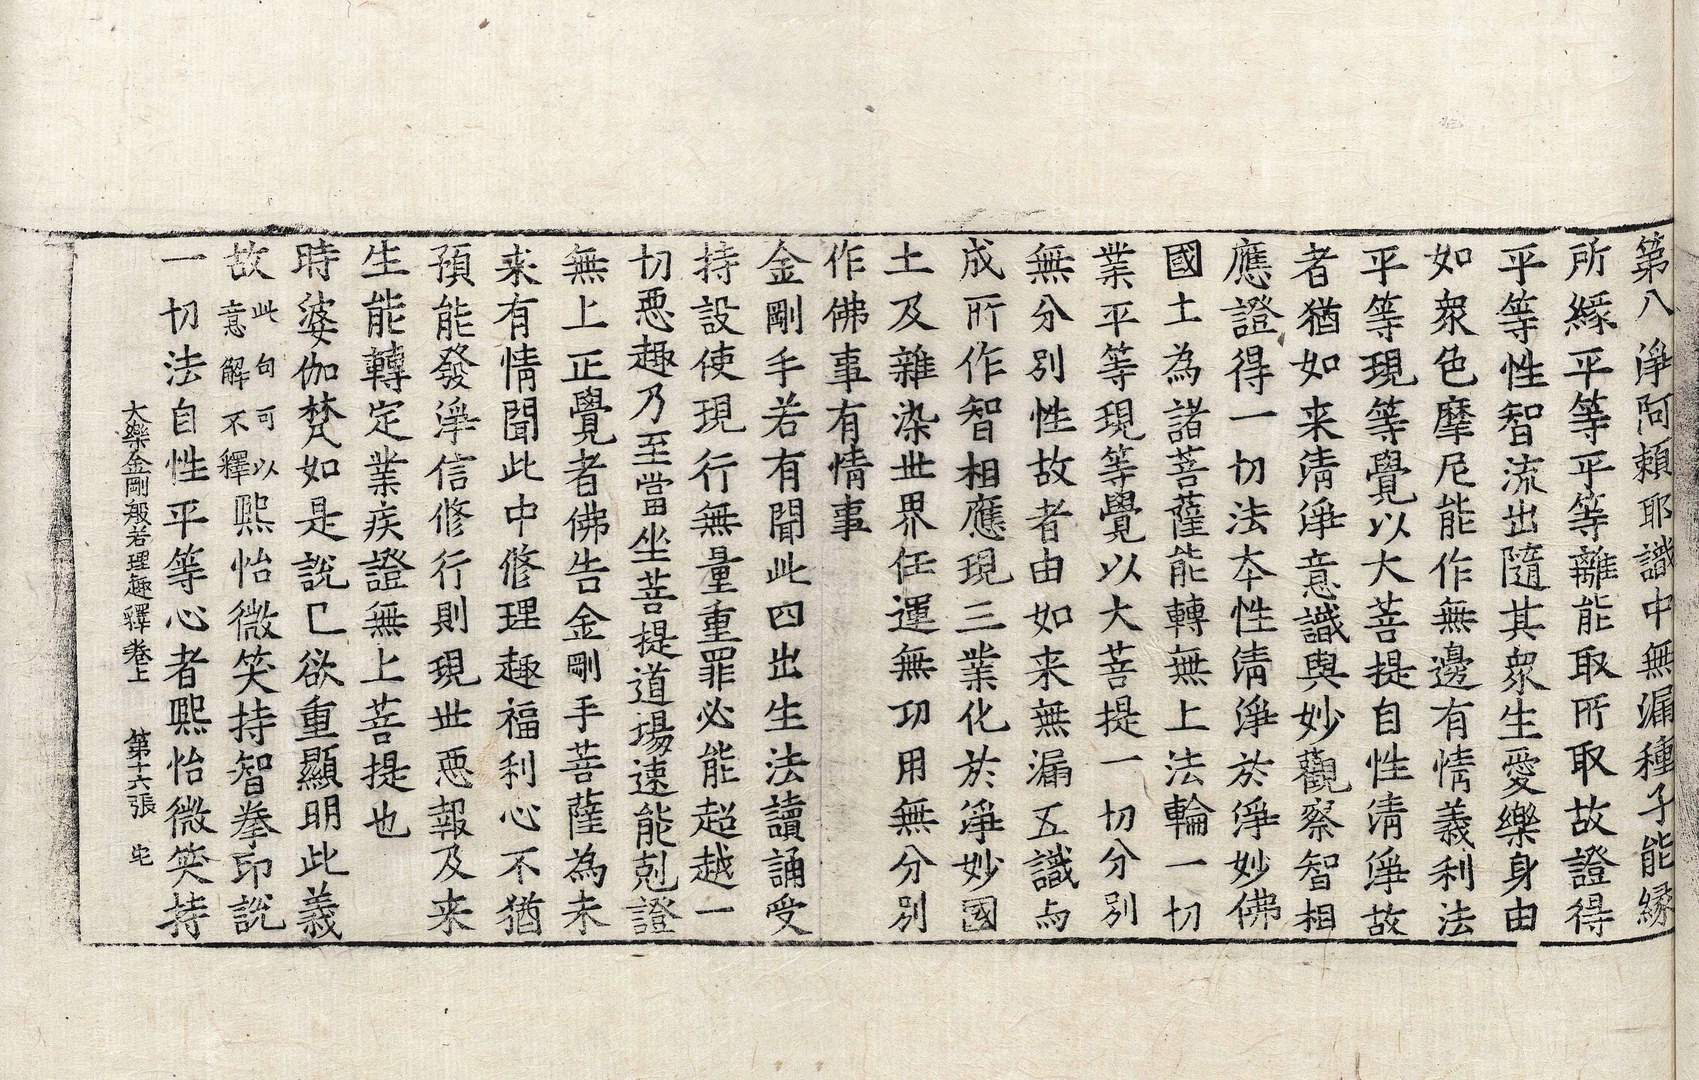 第八淨阿頼耶識中無漏種子能緣
所緣平等平等離能取所取故證得
平等性智流出隨其衆生愛樂身由
如衆色摩尼能作無邊有情義利法
平等現等覺以大菩提自性清淨故
者猶如来清淨意識與妙觀察智相
應證得一切法本性清淨於淨妙佛
國土為諸菩薩能轉無上法輪一切
業平等現等覺以大菩提一切分別
無分別性故者由如来無漏五識与
成所作智相應現三業化於淨妙國
土及雜染世界任運無功用無分別
作佛事有情事
金剛手若有聞此四出生法讀誦受
持設使現行無量重罪必能超越一
切惡趣乃至當坐菩提道場速能剋證
無上正覺者佛告金剛手菩薩為未
来有情聞此中修理趣福利心不猶
預能發淨信修行則現世惡報及来
生能轉定業疾證無上菩提也
時婆伽梵如是說已欲重顯明此義
故此句可以意解不釋熙怡微笑持智拳印說
一切法自性平等心者熙怡微笑持
大樂金剛般若理趣釋卷上 第十六張